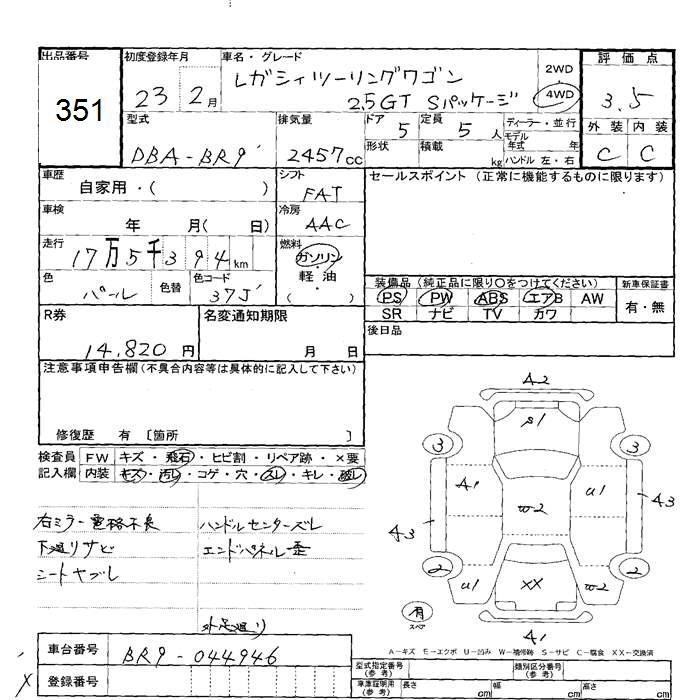 出品番号
351
初度登録年月
23 2月
車名・グレード
レガシィツーリングワゴン
2.5GT Sパッケージ
2WD
4WD
評価点
3.5
外装 内装
C C
型式
DBA-BR9
排気量
2457cc
ドア 5
定員 5人
形状
積載 kg
ディーラー・並行
モデル年式 年
ハンドル 左・右
車歴
自家用・( )
シフト
FAT
セールスポイント(正常に機能するものに限ります)
車検
年 月( 日)
冷房
AAC
走行
17万5千394km
燃料
ガソリン・
軽・油
・
( )
色
パール
色替
色コード
37J
装備品(純正品に限り○をつけてください)
新車保証書
PS PW ABS エアB AW
SR ナビ TV カワ
有・無
R券
14,820円
名変通知期限
月 日
後日品
注意事項申告欄(不具合内容等は具体的に記入して下さい)
修復歴 有 〔箇所 〕
検査員 FW キズ・飛石・ヒビ割・リペア跡・×要
記入欄 内装 キズ・汚レ・コゲ・穴・スレ・キレ・破レ
右ミラー電格不良
ハンドルセンターズレ
下廻リサビ
エンドパネル歪
シートヤブレ
外足廻リ
A2
S1
3 3
A1 W2 U1
A3 A3
2 2
U1 XX W2
有
スペア
A1
A-キズ E-エクボ U-凹み W-補修跡 S-サビ C-腐食 XX-交換済
車台番号
BR9-044946
登録番号
型式指定番号
(参考)
類別区分番号
(参考)
車庫証明用
(参考)
長さ cm
幅 cm
高さ cm